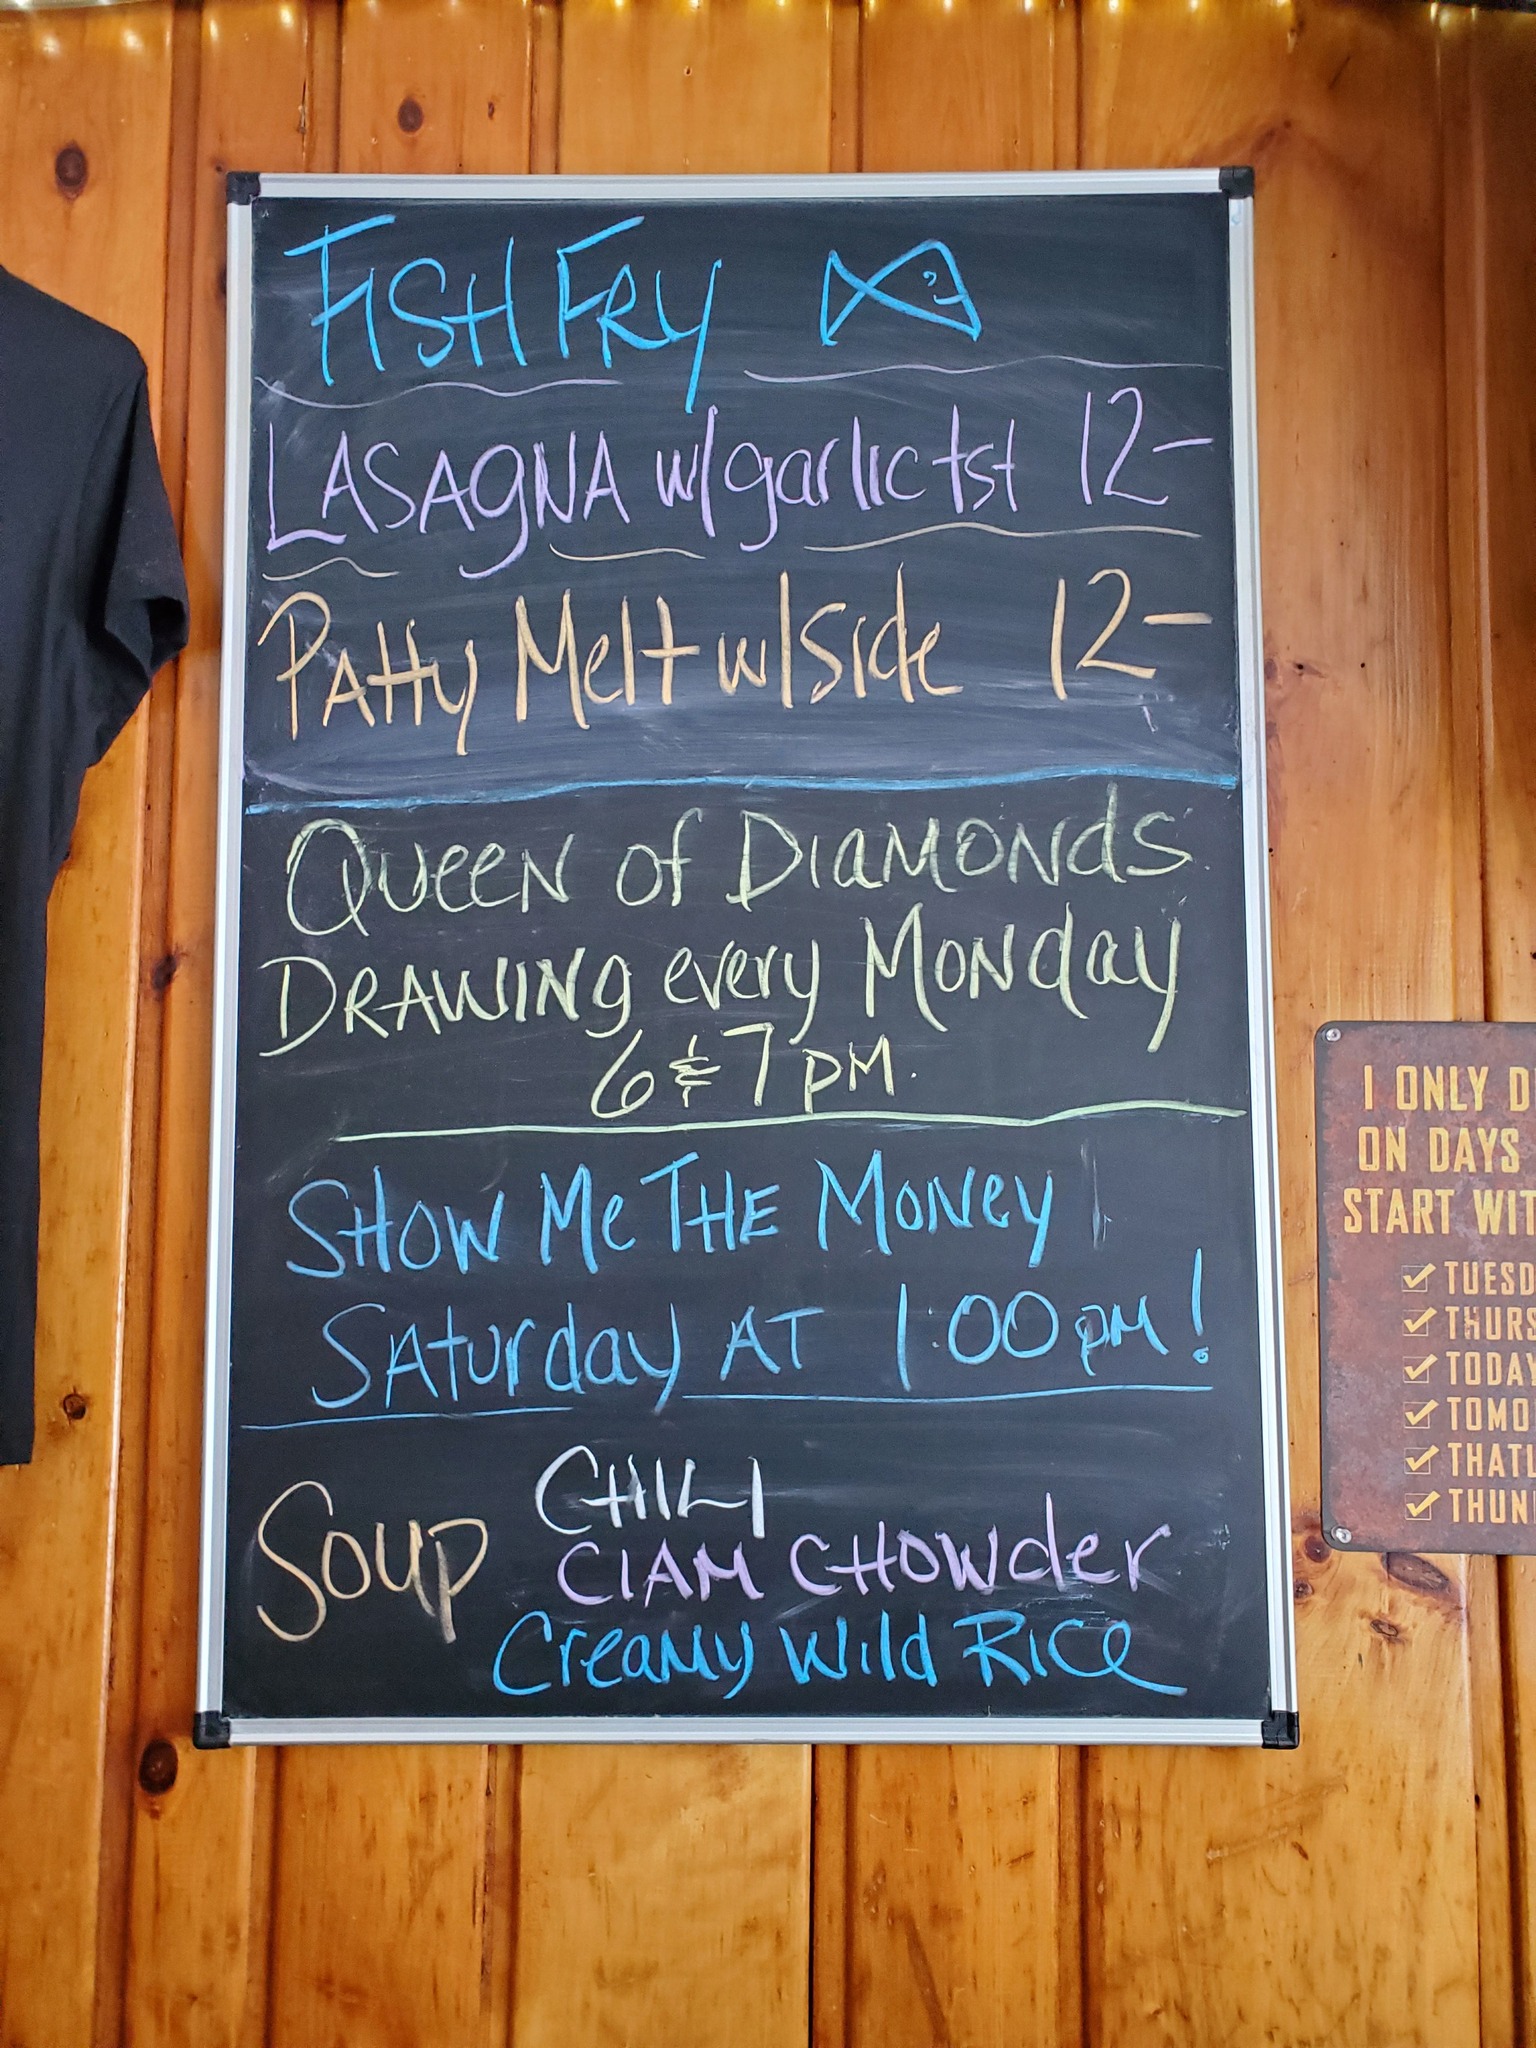 FISH FRY
LASAGNA w/garlic tst 12-
PAtty Melt w/side 12-
QUEEN of DIAMONds
DRAWINg every MONday
6 & 7 pM.
SHOW Me THE MONey
SAturday AT 1:00 pM!
SOUP
CHILI
ClAM CHOWder
CreAMy Wild RICe
I ONLY D
ON DAYS
START WIT
TUESD
THURS
TODAY
TOMO
THATL
THUN